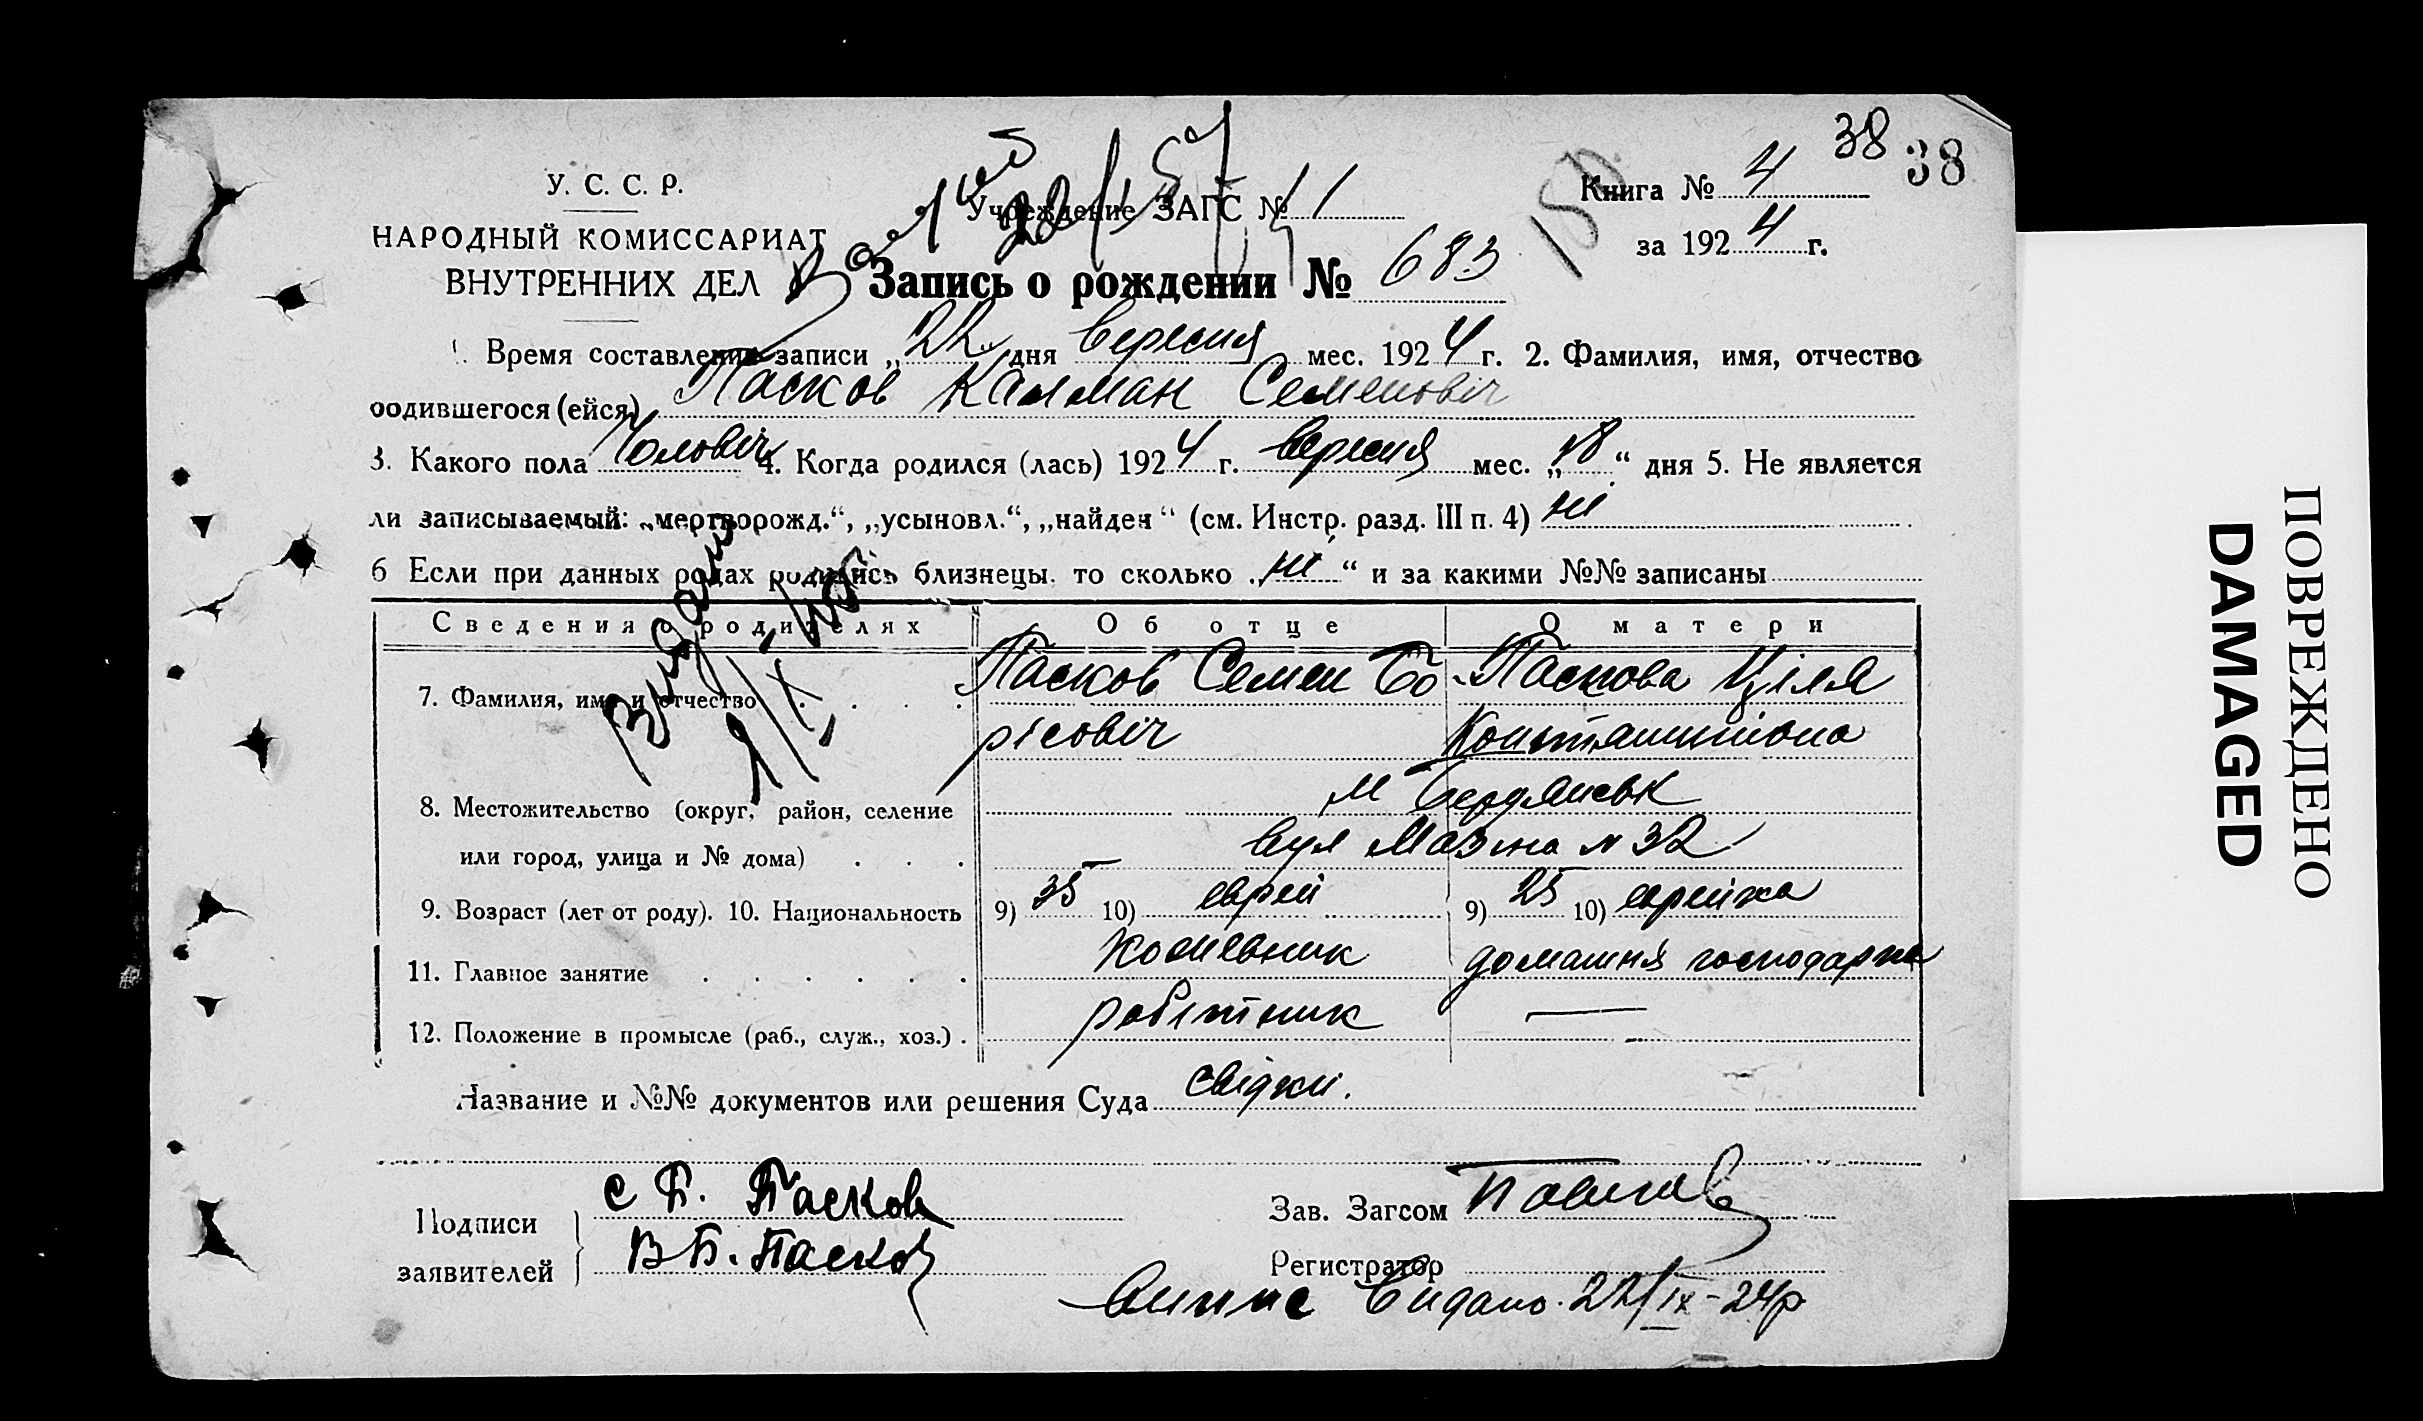 38 38
У. С. С. Р.
НАРОДНЫЙ КОМИССАРИАТ
ВНУТРЕННИХ ДЕЛ
Учреждение ЗАГС № 1
Книга № 4
за 1924 г.
Запись о рождении № 683
1. Время составления записи „22“ дня вересня мес. 1924 г. 2. Фамилия, имя, отчество
родившегося (ейся) Пасков Калман Семенович
3. Какого пола Чоловіч 4. Когда родился (лась) 1924 г. вересня мес. „18“ дня 5. Не является
ли записываемый: „мертворожд.“, „усыновл.“, „найден“ (см. Инстр. разд. III п. 4) ні
6 Если при данных родах родились близнецы, то сколько „ні“ и за какими №№ записаны
Сведения о родителях Об отце О матери
7. Фамилия, имя и отчество . . . . Пасков Семен Бо- Паскова Ціля
рісовіч Константинівна
8. Местожительство (округ, район, селение м Бердянськ
или город, улица и № дома) . . . вул Мазіна № 32
9. Возраст (лет от роду). 10. Национальность 9) 35 10) еврей 9) 25 10) еврейка
11. Главное занятие . . . . . . домашня господарка
12. Положение в промысле (раб., служ., хоз.) . робітник —
Название и №№ документов или решения Суда свідки.
Подписи
заявителей
С Б. Пасков
В Б. Пасков
Зав. Загсом
Регистратор
Видано 22/IX-24р
Видано
ПОВРЕЖДЕНО
DAMAGED